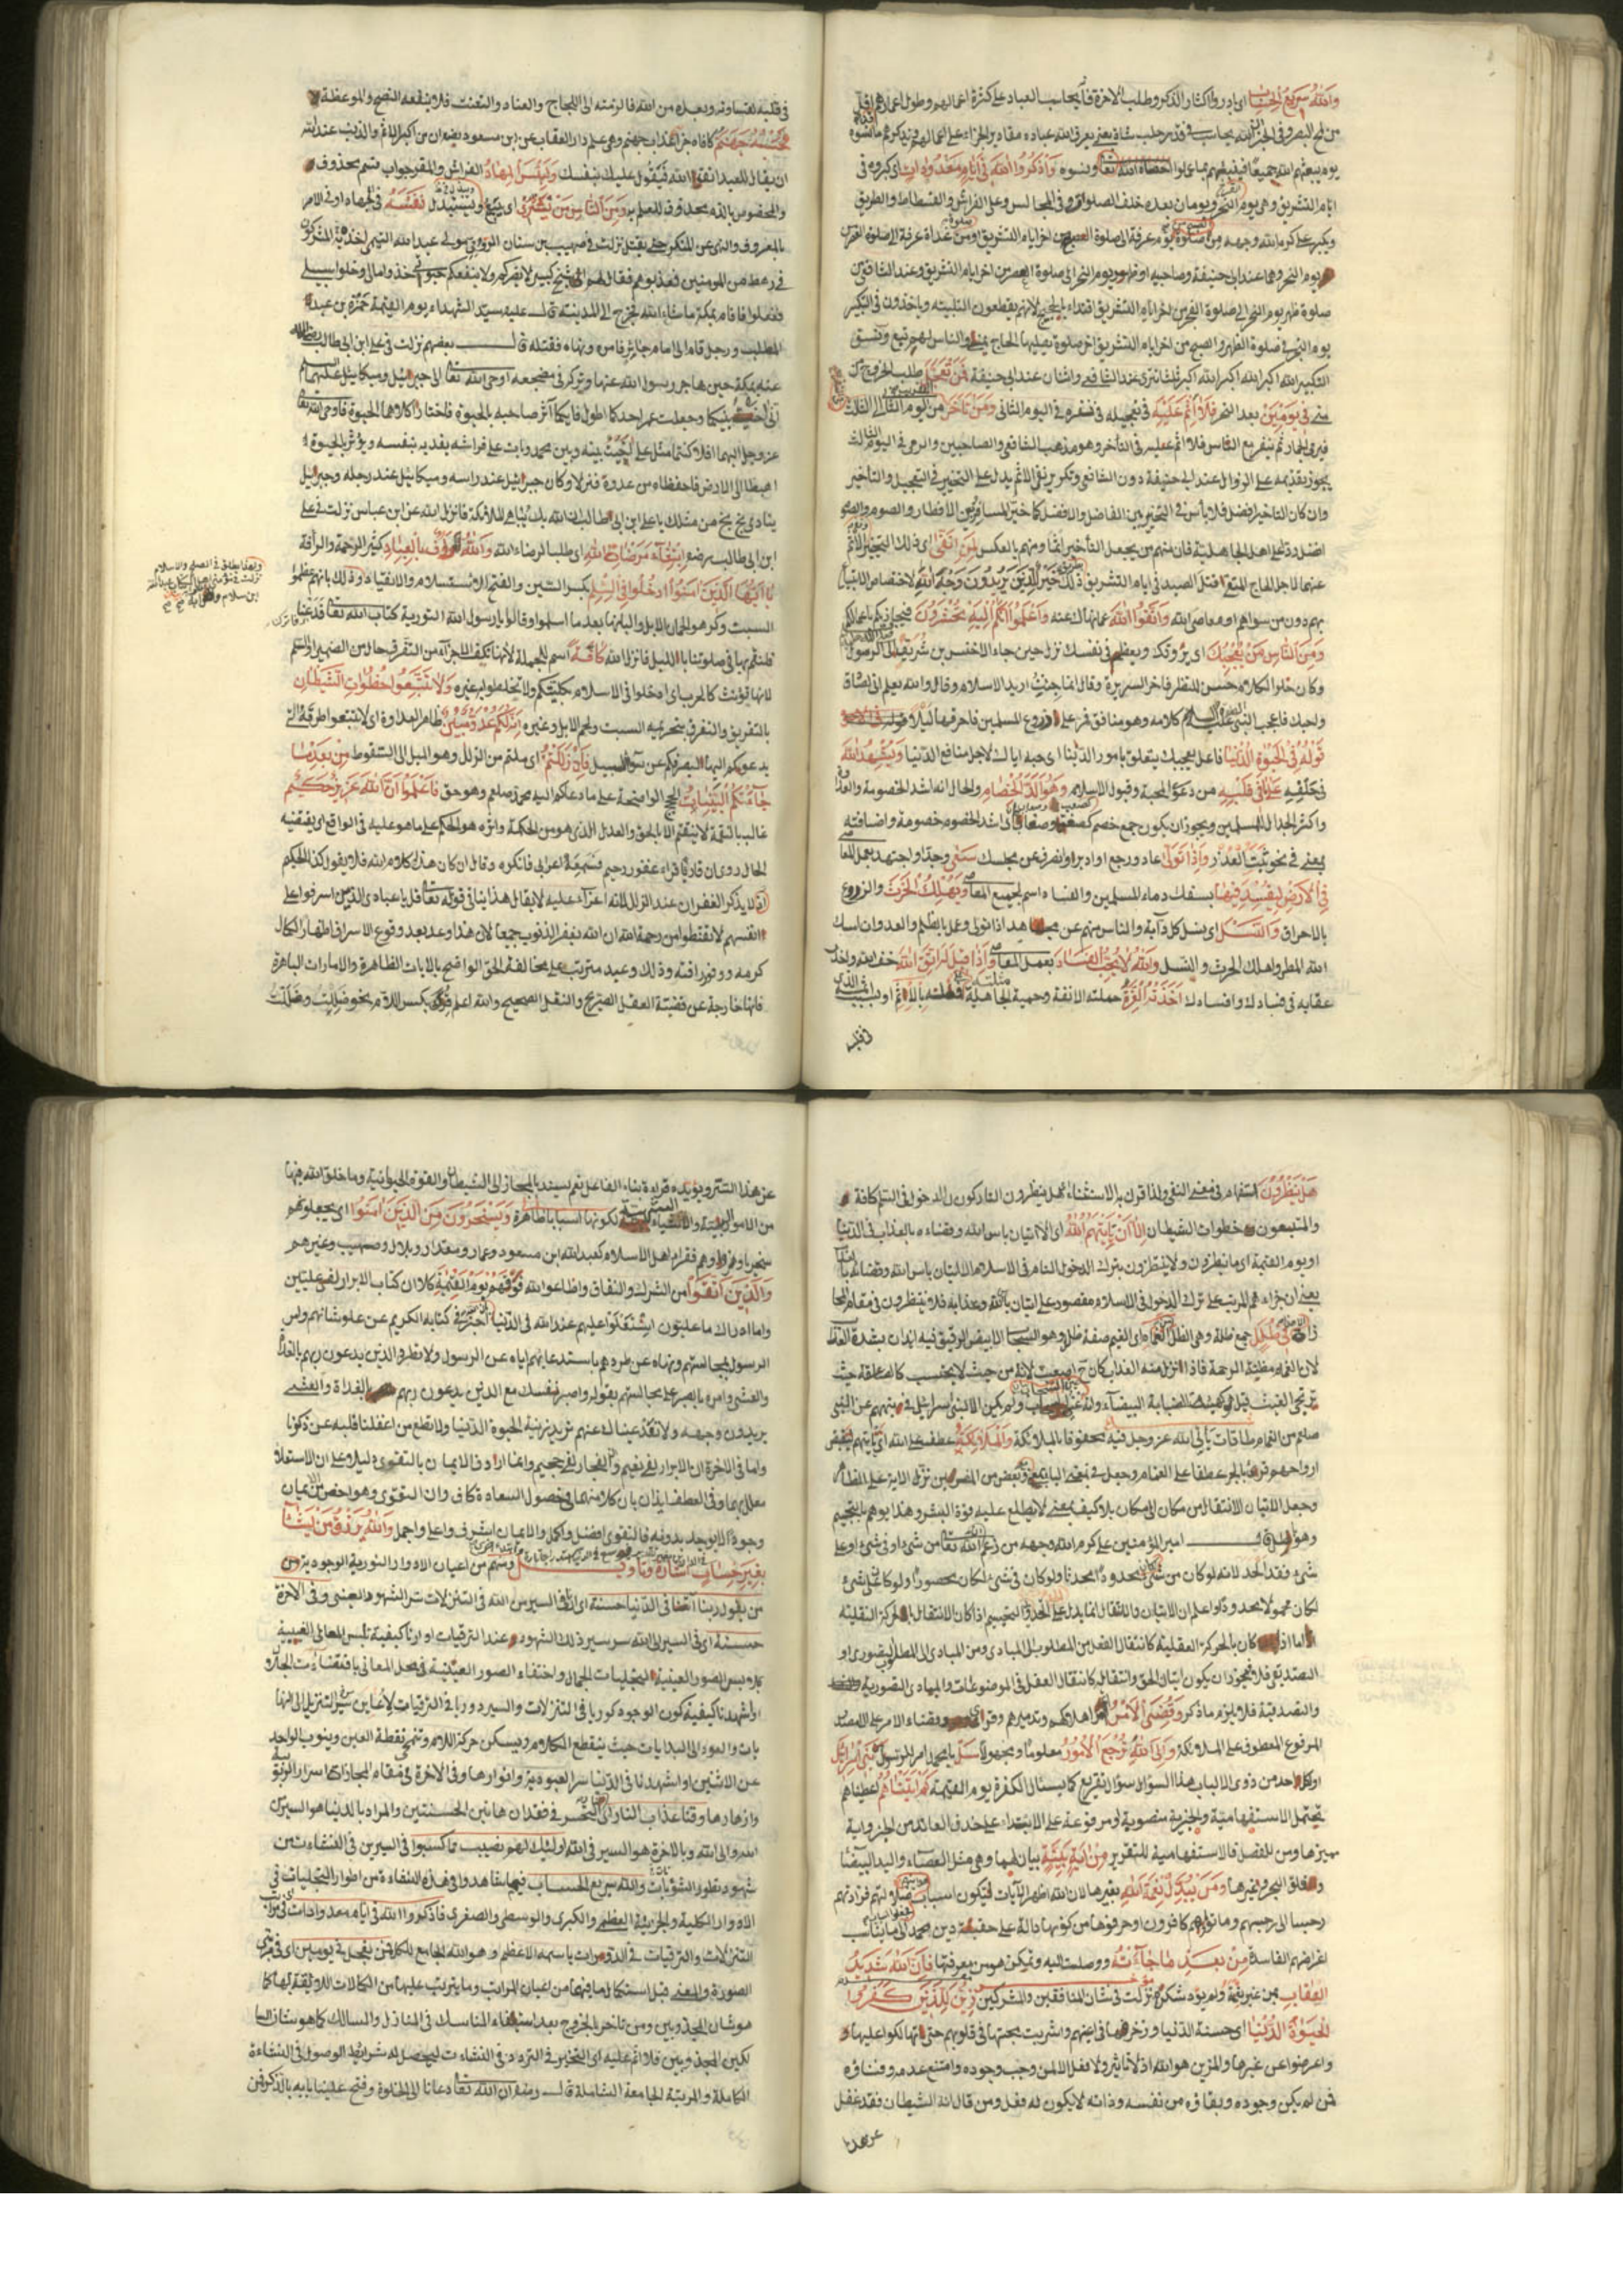 والله سريع الحساب اي بادروا اكثار الذكر وطلب الآخرة فانه يحاسب العباد على كثرة اعمالهم وطول اعمارهم في اقل
من لمح البصر وفي الخبر الله يحاسب في قدر حلب شاة يعني يعرف الله عباده مقادير الجزاء على اعمالهم ويذكرهم ما نسوه
يوم يبعثهم الله جميعا فينبئهم بما عملوا احصاه الله ونسوه واذكروا الله في ايام معدودات اي كبروه في
ايام التشريق وهي يوم النحر ويومان بعده خلف الصلوات وفي المجالس وعلى الفراش والفسطاط والطريق
ويكبر علي كرم الله وجهه من صلوة يوم عرفة الى صلوة العصر من اخر ايام التشريق وعن غداة عرفة الى صلوة العصر
يوم النحر وهما عند ابي حنيفة وصاحبيه او ظهر يوم النحر الى صلوة العصر من اخر ايام التشريق وعند الشافعي من
صلوة ظهر يوم النحر الى صلوة الفجر من اخر ايام التشريق اقتداء بالحجيج لانهم يقطعون التلبية وياخذون في التكبير
يوم النحر في صلوة الظهر والصبح من اخر ايام التشريق اخر صلوة يصليها الحاج بمنى والناس لهم تبع ونسق
التكبير الله اكبر الله اكبر الله اكبر ثلثا تترى عند الشافعي واثنان عند ابي حنيفة فمن تعجل طلب الخروج من
منى في يومين بعد النحر فلا اثم عليه في تعجيله في نفره في اليوم الثاني ومن تاخر من اليوم الثاني الى الثالث
فيرمي الجمار ثم ينفر مع الناس فلا اثم عليه في التأخر وهو مذهب الشافعي والصاحبين والرمي في اليوم الثالث
يجوز تقديمه على الزوال عند ابي حنيفة دون الشافعي وتكرير نفي الاثم يدل على التخيير في التعجيل والتاخير
وان كان التاخير افضل فلا بأس في التخيير بين الفاضل والافضل كما خير المسافر بين الافطار والصوم والصوم
افضل رد على اهل الجاهلية فان منهم من يجعل التأخير اثما ومنهم بالعكس لمن اتقى اي ذلك التخيير الاثم
عنهما لاجل الحاج المتقي قتل الصيد في ايام التشريق ذلك خير للذين يريدون وجه الله لاختصاص الانتفاع
بهم دون من سواهم او معاصي الله واتقوا الله عما نهاك عنه واعلموا انكم اليه تحشرون فيجازيكم باعمالكم
ومن الناس من يعجبك اي يروقك ويعظم في نفسك نزل حين جاء الاخنس بن شريق الى الرسول
وكان حلو الكلام حسن المنظر فاخر السريرة وقال انما جئت اريد الاسلام وقال والله يعلم اني لصادق
ولحبك فاعجب النبي عليه السلام كلامه وهو منافق فمر على زروع المسلمين فاحرقها ليلا
قوله في الحيوة الدنيا فاعل يعجبك يتعلق بامور الدنيا اي حبه اياك لاجل منافع الدنيا ويشهد الله
في حلفه على ما في قلبه من دعوى المحبة وقبول الاسلام وهو الد الخصام والحال انه اشد الخصومة والعداوة
واكثر الجدال للمسلمين ويجوز ان يكون جمع خصم كصعب وصعاب اي اشد الخصوم خصومة واضافته
بمعنى في نحو ثبت الغدر واذا تولى عاد ورجع او ادبر او انصرف عن مجلسك سعى وجد واجتهد بعمل المعاصي
في الارض ليفسد فيها بسفك دماء المسلمين والفساد اسم لجميع المعاصي ويهلك الحرث والزروع
بالاحراق والنسل اي نسل كل دابة والناس منهم عن مجاهد اذا تولى وعمل بالظلم والعدوان امسك
الله المطر واهلك الحرث والنسل والله لا يحب الفساد بعمل المعاصي واذا قيل له اتق الله خف الله واحذر
عقابه في فسادك وافسادك اخذته العزة حملته الانفة وحمية الجاهلية بالاثم او بسبب اثمه الذي
في قلبه لقساوته وبعده من الله فالزمته الى اللجاج والعناد والتعنت فلا ينفعه النصح والموعظة
فحسبه جهنم كفاه جزاء عذاب جهنم وهي علم دار العقاب عن ابن مسعود رضي ان من اكبر الاثم والذنب عند الله
ان يقال للعبد اتق الله فيقول عليك بنفسك ولبئس المهاد الفراش والمقر جواب قسم محذوف
والمخصوص بالذم محذوف للعلم به ومن الناس من يشري اي يبيع ويستبدل نفسه في الجهاد او في الامر
بالمعروف والنهي عن المنكر حتى يقتل نزلت في صهيب بن سنان الرومي مولى عبد الله التيمي اخذه المشركون
في رهط من المؤمنين فعذبوهم فقال لهم اني شيخ كبير لا يضركم ولا ينفعكم خذوا مالي وخلوا سبيلي
ففعلوا فاقام بمكة ما شاء الله فخرج الى المدينة قال عليه سيد الشهداء يوم القيمة حمزة بن عبد
المطلب ورجل قام الى امام جائر فامره ونهاه فقتله قال بعضهم نزلت في علي ابن ابي طالب رضي الله
عنه بمكة حين هاجر رسول الله عنها وتركه في مضجعه اوحى الله تعالى الى جبرئيل وميكائيل عليهما السلام
اني اخيت بينكما وجعلت عمر احدكما اطول فايكما آثر صاحبه بالحيوة فاختارا كلاهما الحيوة فاوحى الله تعالى
عز وجل اليهما افلا كنتما مثل علي اخيت بينه وبين محمد وبات على فراشه يفديه بنفسه ويؤثر بالحيوة
اهبطا الى الارض فاحفظاه من عدوه فنزلا وكان جبرئيل عند راسه وميكائيل عند رجله وجبرئيل
ينادي بخ بخ من مثلك يا علي ابن ابي طالب ان الله بك يباهي الملائكة فانزل الله عن ابن عباس نزلت في علي
ابن ابي طالب رضي ابتغاء مرضات الله اي طلبا لرضاء الله والله رؤف بالعباد كثير الرحمة والرأفة
يا ايها الذين آمنوا ادخلوا في السلم بكسر السين والفتح الاستسلام والانقياد وذلك بانهم عظموا
السبت وكرهوا لحمان الابل والبانها بعد ما اسلموا وقالوا يا رسول الله التورية كتاب الله تعالى فدعنا
فلنقم بها في صلوتنا بالليل فانزل الله كافة اسم للجملة لانها تكف الاجزاء من التفرق حال من الضمير او السلم
لانها تؤنث كالحرب اي ادخلوا في الاسلام بكليتكم ولا تخلطوا به غيره ولا تتبعوا خطوات الشيطان
بالتفريق والتفرق بتحريم السبت ولحم الابل وغيره انه لكم عدو مبين ظاهر العداوة اي لا تتبعوا طرقه التي
يدعوكم اليها ليصرفكم عن سواء السبيل فان زللتم اي ملتم من الزلل وهو الميل الى السقوط من بعد ما
جاءتكم البينات الحجج الواضحة على ما دعاكم اليه محمد صلعم وهو حق فاعلموا ان الله عزيز حكيم
غالب بالنقمة لا ينتقم الا بالحق والعدل الذي هو من الحكمة وانه هو الحكم على ما هو عليه في الواقع اي يقتضيه
الحال روي ان قاريا قراء غفور رحيم فسمعه اعرابي فانكره وقال ان كان هذا كلام الله فلا يقول كذا الحكيم
لا يذكر الغفران عند الزلل لانه اغراء عليه لا يقال هذا ينافي قوله تعالى قل يا عبادي الذين اسرفوا على
انفسهم لا تقنطوا من رحمة الله ان الله يغفر الذنوب جميعا لان هذا وعد بعد وقوع الاسراف اظهارا لكمال
كرمه ووفور رافته وذلك وعيد مترتب على مخالفة الحق الواضح بالايات الظاهرة والامارات الباهرة
فانها خارجة عن قضية العقل الصريح والنقل الصحيح والله اعلم قرئ بكسر اللام نحو ضللت وضللت
هل ينظرون استفهام في معنى النفي ولذا قرن به الاستثناء هل ينظرون التاركون الدخول في السلم كافة
والمتبعون خطوات الشيطان الا ان ياتيهم الله اي الا اتيان باس الله وقضاءه بالعذاب في الدنيا
او يوم القيمة اي ما ينظرون ولا ينتظرون بترك الدخول التام في الاسلام الا اتيان باس الله وقضائه
يعني ان جزاءهم المرتب على ترك الدخول في الاسلام مقصور على اتيان باس الله وعذابه فلا ينتظرون في مقام المجا
زاة في ظلل جمع ظلة وهي الظل من الغمام اي الغيم صفة ظلل وهو السحاب الابيض الرقيق فيه ايذان بشدة العذاب
لان الغمام مظنة الرحمة فاذا نزل منه العذاب كان اصعب لانه من حيث لا يحتسب كالصاعقة حيث
يرتجى الغيث قيل هو كهيئة الضبابة البيضاء ولم يكن الا لبني اسرائيل في تيههم عن النبي
صلعم من الغمام طاقات ياتي الله عز وجل فيه محفوفا بالملائكة والملائكة عطف على الله اي تاتيهم لقبض
ارواحهم قرئ بالجر عطفا على الغمام وجعل في بمعنى الباء وبعض من المفسرين نزل الاية على الظاهر
وجعل الاتيان الانتقال من مكان الى مكان بلا كيف بمعنى لا يطلع عليه قوة البشر وهذا يوهم بالتجسيم
وهو قال امير المؤمنين علي كرم الله وجهه من زعم ان الله تعالى من شئ او في شئ او على
شئ فقد الحد لانه لو كان من شئ لكان محدثا ولو كان في شئ لكان محصورا ولو كان على شئ
لكان محمولا محدودا واعلم ان الاتيان والانتقال انما يدل على الحد والتجسيم اذا كان الانتقال بالحركة النقلية
اما اذا كان بالحركة العقلية كانتقال العقل من المطلوب الى المبادي ومن المبادي الى المطلوب تصوري او
التصديقي فلا فيجوز ان يكون اتيان الحق وانتقاله كانتقال العقل في الموضوعات والمبادي التصورية
والتصديقية فلا يلزم ما ذكر وقضي الامر اهلاكهم وتدميرهم وقرئ وقضاء الامر على المصدر
المرفوع المعطوف على الملائكة والى الله ترجع الامور معلوما ومجهولا سل يا محمد امر للرسول بني اسرائيل
او لكل واحد من ذوي الالباب هذا السؤال سؤال تقريع كما يسئال الكفرة يوم القيمة كم آتيناهم اعطيناهم
يحتمل الاستفهامية والخبرية منصوبة او مرفوعة على الابتداء على حذف العائد من الخبر واية
مميزها ومن للفصل فالاستفهامية للتقرير من آية بينة بيان لهما وهي مثل العصاء واليد البيضاء
وفلق البحر وغيرها ومن يبدل نعمة الله بغيرها لان الله اظهر الآيات لتكون اسباب فزادتهم
رجسا الى رجسهم وماتوا وهم كافرون او حرفوها من كونها دالة على حقية دين محمد الى ما يناسب
اغراضهم الفاسدة من بعد ما جاءته ووصلت اليه وتمكن هو من معرفتها فان الله شديد
العقاب لمن غير نعمة ولم يؤد شكره نزلت في شان المنافقين والمشركين زين للذين كفروا
الحيوة الدنيا اي حسنة الدنيا وزخرفها في اعينهم واشربت محبتها في قلوبهم حتى تهالكوا عليها
واعرضوا عن غيرها والمزين هو الله اذ لا تاثير ولا فعل الا لمن وجب وجوده وامتنع عدمه وفناؤه
فمن لم يكن وجوده وبقاؤه من نفسه وذاته لا يكون له فعل ومن قال انه الشيطان فقد غفل
عن هذا
عن هذا السر ويؤيده قراءة بناء الفاعل نعم يسند بالمجاز الى الشيطان والقوة الحيوانية وما خلق الله فيها
من الامور البهية والاشياء لكونها اسبابا ظاهرة ويسخرون من الذين آمنوا اي يجعلونهم
وهم فقراء اهل الاسلام كعبد الله ابن مسعود وعمار ومقداد وبلال وصهيب وغيرهم
والذين اتقوا من الشرك والنفاق واطاعوا الله فوقهم يوم القيمة كلا ان كتاب الابرار لفي عليين
وما ادراك ما عليون استنكفوا عليهم عند الله في الدنيا اخبر في كتابه الكريم عن علو شانهم وامر
الرسول بمجالستهم ونهاه عن طردهم باستدعائهم اياه عن الرسول ولا تطرد الذين يدعون ربهم بالغداة
والعشي وامره بالصبر على مجالستهم بقوله واصبر نفسك مع الذين يدعون ربهم بالغداة والعشي
يريدون وجهه ولا تعد عيناك عنهم تريد زينة الحيوة الدنيا ولا تطع من اغفلنا قلبه عن ذكرنا
واما في الاخرة ان الابرار لفي نعيم وان الفجار لفي جحيم وانما اردف الايمان بالتقوى دليلا على ان الاستعلاء
معلل بهما وفي العطف ايذان بان كلا منهما في حصول السعادة كاف وان التقوى وهو اخص من الايمان
وجودا لا يوجد بدونه فالتقوى افضل واكمل والايمان اشرف واعلى واجمل والله يرزق من يشاء
بغير حساب اشارة وتاويل ومنهم من اعيان الادوار النورية الوجودية من
من يقول ربنا آتنا في الدنيا حسنة اي اتنا في السير من الله في التنزلات سر الشهود العيني وفي الاخرة
حسنة اي في السير الى الله سر سير ذلك الشهود عند الترقيات او ارنا كيفية تلبس المعاني الغيبية
بملابس الصور العينية التجليات الجمال واختفاء الصور العينية في محل المعاني باقتضاءات الجلال
او اشهدنا كيفية كون الوجود كوريا في التنزلات والسير دوريا في الترقيات لاعاين سر التنزيل الى النها
يات والعود الى البدايات حيث ينقطع الكلام ويسكن حركة اللام وتمحى نقطة العين وينوب الواحد
عن الاثنين او اشهدنا في الدنيا سر العبودية وانوارها وفي الآخرة في مقام المجازاة اسرار الربوبية
وازهارها وقنا عذاب النار اي التحسر في فقدان هاتين الحسنتين والمراد بالدنيا هو السير من
الله والى الله وبالاخرة هو السير في الله اولئك لهم نصيب مما كسبوا في السيرين في النشاءتين
شهود تطور الشؤنات والله سريع الحساب فيما يشاهدوا وهذه النشاءة من اطوار التجليات في
الادوار الكلية والجزئية العظمى والكبرى والوسطى والصغرى فاذكروا الله في ايام معدودات اي في مراتب
التنزلات والترقيات في الدورات باسمه الاعظم وهو الله الجامع للكل فمن تعجل في يومين اي في مرتبتي
الصورة والمعنى قبل استكمال ما فيها من اعيان المراتب وما يترتب عليها من الكمالات اللائقة لها كما
هو شان المجذوبين ومن تاخر بالخروج بعد استيفاء المناسك في المنازل والمسالك كما هو شان السا
لكين المجذوبين فلا اثم عليه اي التخيير في التردد في النشاءت ليحصل له شرائط الوصول في النشاءة
الكاملة والمرتبة الجامعة الشاملة قال رضي ان الله تعالى دعانا الى الخلوة وفتح علينا بابه بالذكر فمن